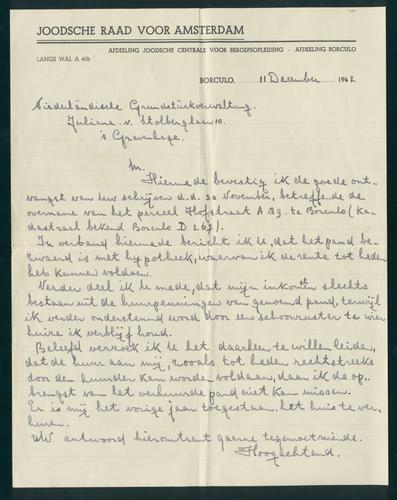 JOODSCHE RAAD VOOR AMSTERDAM
AFDEELING JOODSCHE CENTRALE VOOR BEROEPSOPLEIDING - AFDEELING BORCULO
LANGE WAL A 40b
BORCULO, 11 December 1942
Niederländische Grundstückverwaltung.
Juliana. v. Stolberglaan 10.
's Gravenhage.
M.
Hiermede bevestig ik de goede ont..
vangst van Uw schrijven d.d. 30 November, betreffede de
overname van het perceel Hofstraat A 89. te Borculo (Ka..
dastraal bekend Borculo D 267).
In verband hiermede bericht ik U, dat het pand be..
zwaard is met hypotheek, waarvan ik de rente tot heden
heb kunnen voldoen.
Verder deel ik U mede, dat mijn inkomen slechts
bestaan uit de huurpenningen van genoemd pand, terwijl
ik verder ondersteund word door een schoonzuster te wier
huize ik verblijf houd.
Beleefd verzoek ik U het daarheen te willen leiden,
dat de huur aan mij, zooals tot heden rechtstreeks
door den huurder kan worden voldaan, daar ik de op..
brengst van het verhuurde pand niet kan missen.
Er is mij het vorige jaar toegestaan, het huis te ver..
huren.
Uw antwoord hieromtrent gaarne tegemoetziende.
Hoogachtend.